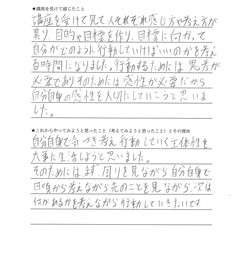 ★講座を受けて感じたこと
講座を受けて見て人それぞれ感じ方や考え方が
異り、目的や目標を作り、目標に向かって
自分がどのように行動していけばいいのかを考え
る時間になりました。行動するためには思考が
必要でありそのためには感性が必要だから
自分自身の感性を大切にしていこうと思い
ました。
★これからやってみようと思ったこと(考えてみようと思ったこと)とその理由
自分自身で気づき考え行動していく主体性を
大事に生活しようと思いました。
そのためにはまず、周りを見ながら自分自身で
日頃から考えながら先のことを見ながら、次は
何があるかを考えながら行動していきたいです